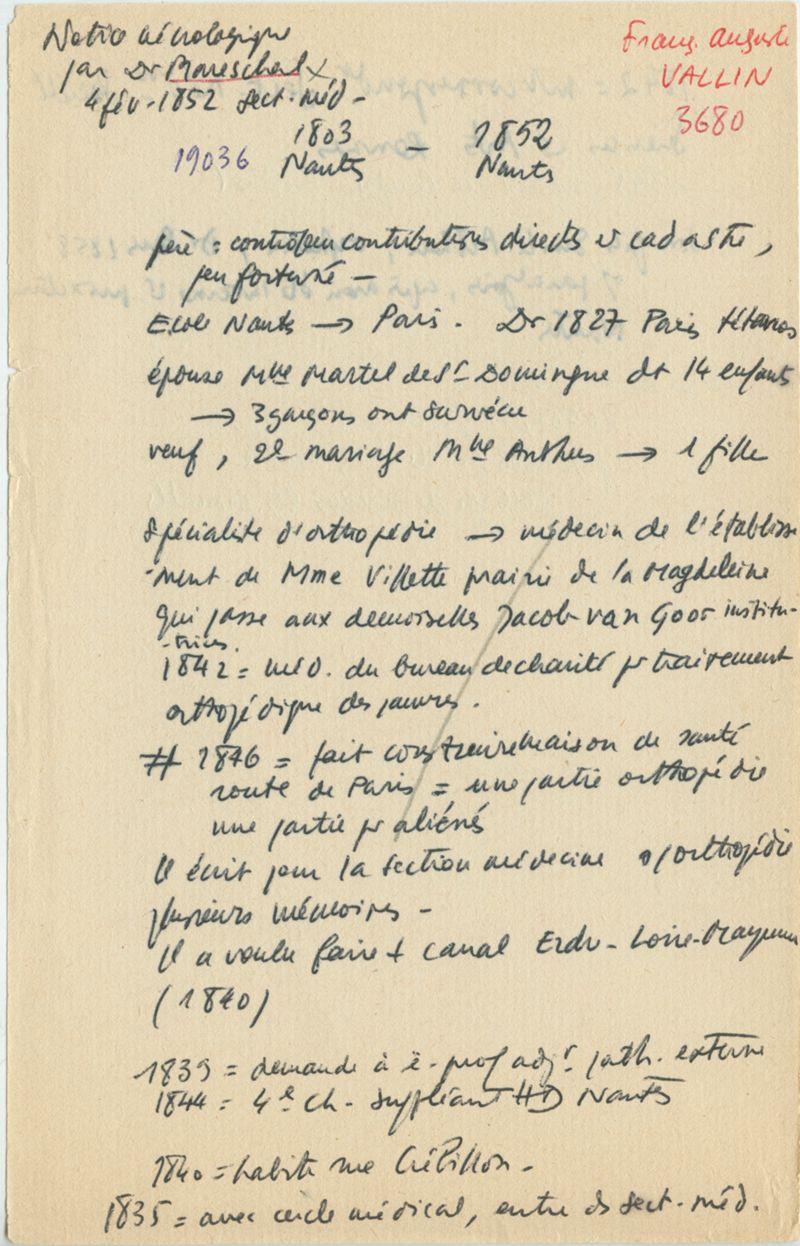 Notice nécrologique
par Dr Mareschal
4 fév. 1852 sect. méd -
Franç. Auguste
VALLIN
3680
1803 - 1852
19036 Nantes Nantes
père = contrôleur contributions directes et cadastre,
peu fortuné -
Ecole Nantes → Paris. Dr 1827 Paris tétanos
épouse Mlle Martel de St Domingue dt 14 enfants
→ 3 garçons ont survécu
veuf, 2e mariage Mlle Anthus → 1 fille
Spécialiste d'orthopédie → médecin de l'établisse
-ment de Mme Villette prairie de la Magdeleine
qui passe aux demoiselles Jacob van Goor institu-
-trices.
1842 = méd. du bureau de charité pr traitement
orthopédique des pauvres.
# 1846 = fait construire maison de santé
route de Paris = une partie orthopédie
une partie pr aliénés
Il écrit pour la section médecine orthopédie
plusieurs mémoires -
Il a voulu faire canal Erdre - Loire - Mayenne
(1840)
1839 = demande à ê. prof adjt path. externe
1844 = 4e ch. suppléant HD Nantes
1840 = habite rue Crébillon -
1835 = avec cercle médical, entre ds sect. méd.